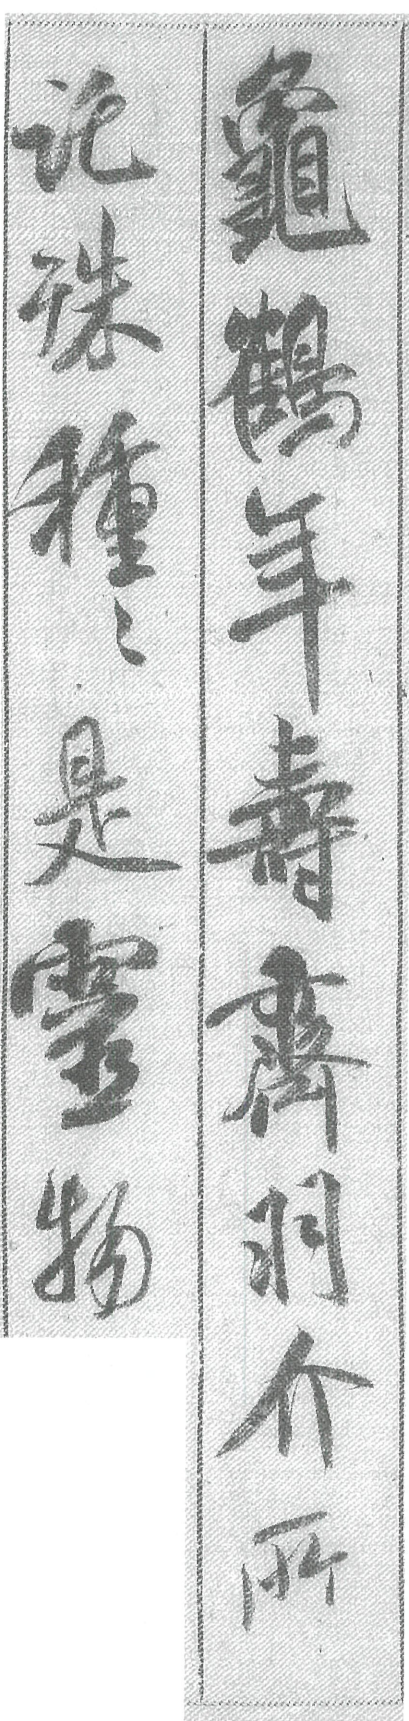 龜鶴年壽齊羽介所
託殊種〻是靈物